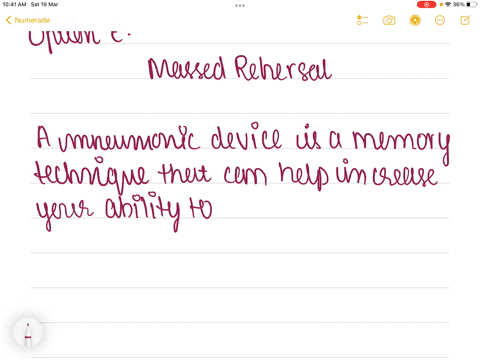 10:41 AM Sat 19 Mar
36%
Numerade
Option C.
Massed Rehersal
A mneumonic device is a memory
technique that can help increase
your ability to